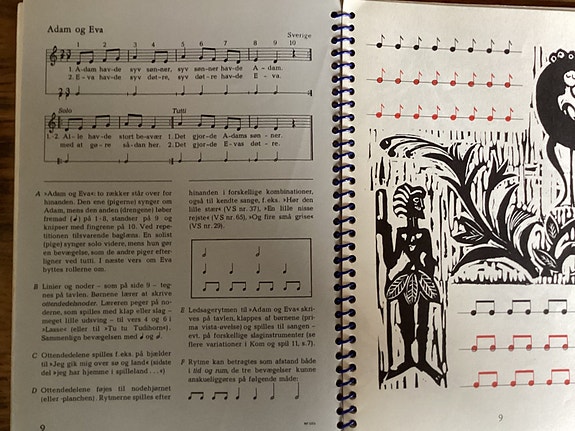 Adam og Eva
Sverige
1 2 3 4 5 6 7 8 9 10
1. A-dam hav-de syv søn-ner, syv søn-ner hav-de A - dam.
2. E - va hav-de syv døt-re, syv døt-re hav-de E - va.
Solo Tutti
1.-2. Al - le hav-de stort be-svær 1. Det gjor-de A-dams søn - ner.
med at gø - re så-dan her. 2. Det gjor-de E-vas døt - re.
A »Adam og Eva« to rækker står over for
hinanden. Den ene (pigerne) synger om
Adam, mens den anden (drengene) løber
fremad på 1-8, standser på 9 og
knipser med fingrene på 10. Ved rep-
etitionen tilsvarende baglæns. En solist
(pige) synger solo videre, mens hun gør
en bevægelse, som de andre piger efter-
ligner ved tutti. I næste vers om Eva
byttes rollerne om.
B Linier og noder – som på side 9 – teg-
nes på tavlen. Børnene lærer at skrive
ottendedelsnoder. Læreren peger på no-
derne, som spilles med klap eller slag –
meget lille udsving – til vers 4 og 6 i
»Lasse« (eller til »Tu tu Tudihorn«).
Sammenlign bevægelsen med og
C Ottendedelene spilles f. eks. på hjælder
til »Jeg gik mig over sø og land« (sidste
del »jeg har hjemme i spilleland . . .«)
D Ottendedelene føjes til nodehjørnet
(eller -planchen). Rytmerne spilles efter
hinanden i forskellige kombinationer,
også til kendte sange, f. eks. »Hør den
lille stær« (VS nr. 37), »En lille nisse
rejste« (VS nr. 65), »Og fire små grise«
(VS nr. 29).
E Ledsagerytmen til »Adam og Eva« skri-
ves på tavlen, klappes af børnene (pri-
ma vista-øvelse) og spilles til sangen –
evt. på forskellige slaginstrumenter (se
flere variationer i Kom og spil 11, s. 7).
F Rytme kan betragtes som afstand både
i tid og rum, de tre bevægelser kunne
anskueliggøres på følgende måde:
9
9